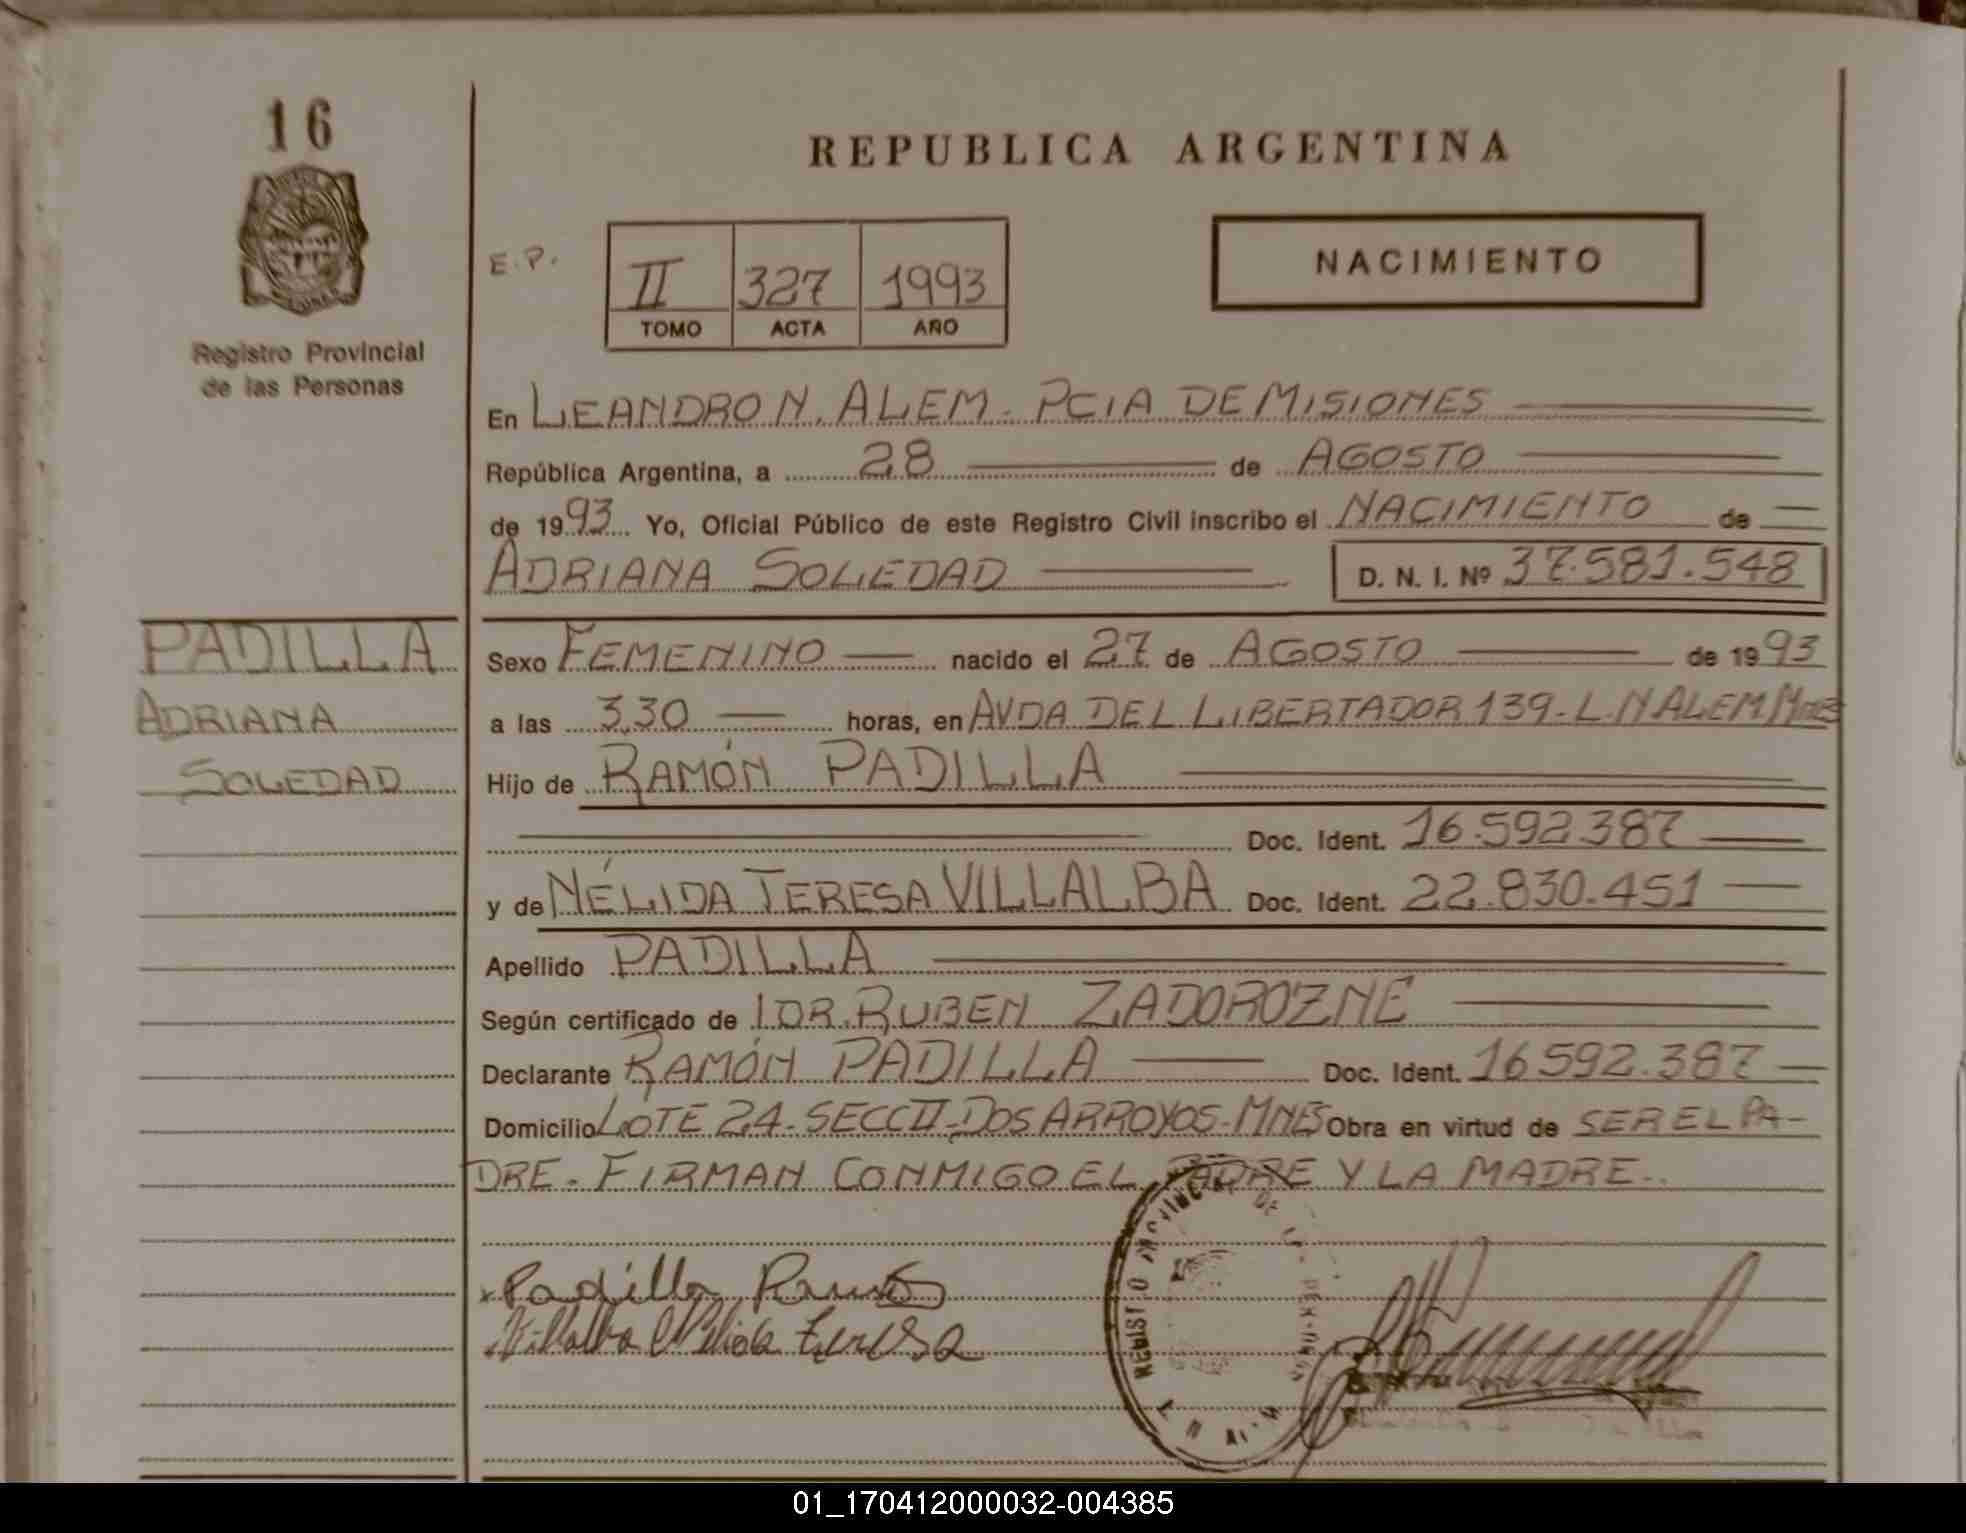 16
REPUBLICA ARGENTINA
E.P.
II 327 1993
TOMO ACTA AÑO
NACIMIENTO
Registro Provincial
de las Personas
En LEANDRO N. ALEM - PCIA DE MISIONES
República Argentina, a 28 de AGOSTO
de 1993 Yo, Oficial Público de este Registro Civil inscribo el NACIMIENTO de
ADRIANA SOLEDAD D. N. I. Nº 37.581.548
PADILLA
ADRIANA
SOLEDAD
Sexo FEMENINO nacido el 27 de AGOSTO de 1993
a las 3,30 horas, en AVDA DEL LIBERTADOR 139 - L.N ALEM Mnes
Hijo de RAMÓN PADILLA
Doc. Ident. 16.592.387
y de NÉLIDA TERESA VILLALBA Doc. Ident. 22.830.451
Apellido PADILLA
Según certificado de IDR. RUBEN ZADOROZNE
Declarante RAMÓN PADILLA Doc. Ident. 16592.387
Domicilio LOTE 24 - SECC II - DOS ARROYOS - MNES Obra en virtud de SER EL PA-
DRE - FIRMAN CONMIGO EL PADRE Y LA MADRE..
Padilla Ramó
Villalba Nelida Teresa
REGISTRO PROVINCIAL DE LAS PERSONAS
01_170412000032-004385